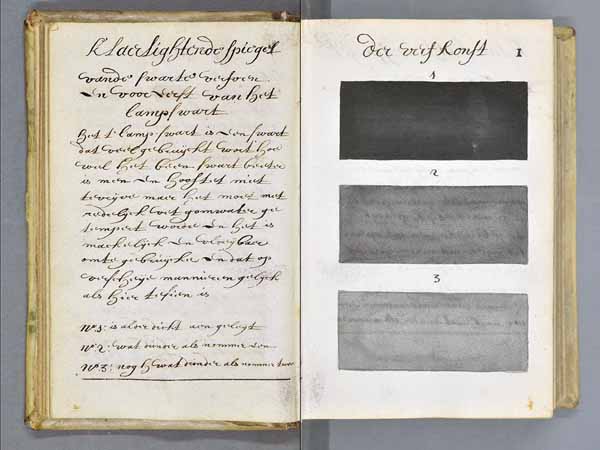 Klaerlightende spiegel
vande swarte verfven
En voor Eerst van het
lampswart
Het t lampswart is Een swart
dat veel gebruijckt wort hoe
wel het been swart beeter
is men En hooftet niet
maer het moet met
redelijck vet gomwater ge
tempert worde En het is
mackelijck En vloeijbaer
omte gebruijcke En dat op
verscheije mannieren gelyck
als hier te sien is
N° 1: is alder dickt aen geleyt
N° 2: wat dunder als nommer Een
N° 3: nogh wat dunder als nommer twee
der verfkonst
1
1
2
3